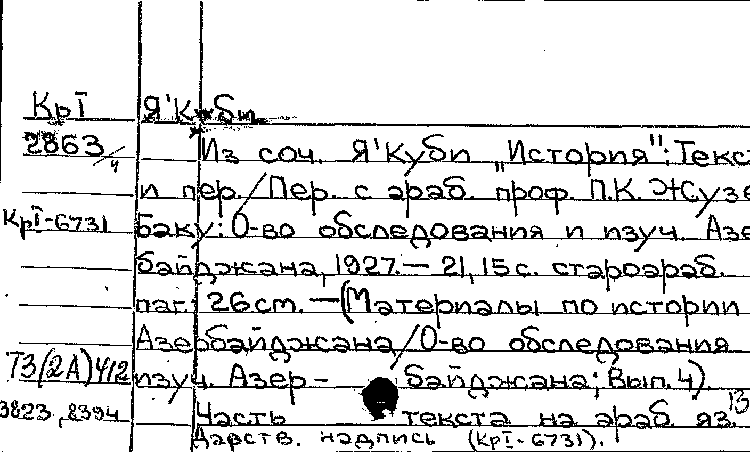 КрI Я'Куби
2863/4 Из соч. Я'Куби „История": Текс
и пер./Пер. с араб. проф. П.К. Жузе
КрI-6731 Баку: О-во обследования и изуч. Азе
байджана, 1927.— 21, 15 с. староараб.
паг.; 26 см. —(Материалы по истории
Азербайджана/О-во обследования
Т3(2А)4/2 изуч. Азер- байджана; Вып. 4).
3823, 8394 Часть текста на араб. яз. 13
Дарств. надпись (КрI-6731).